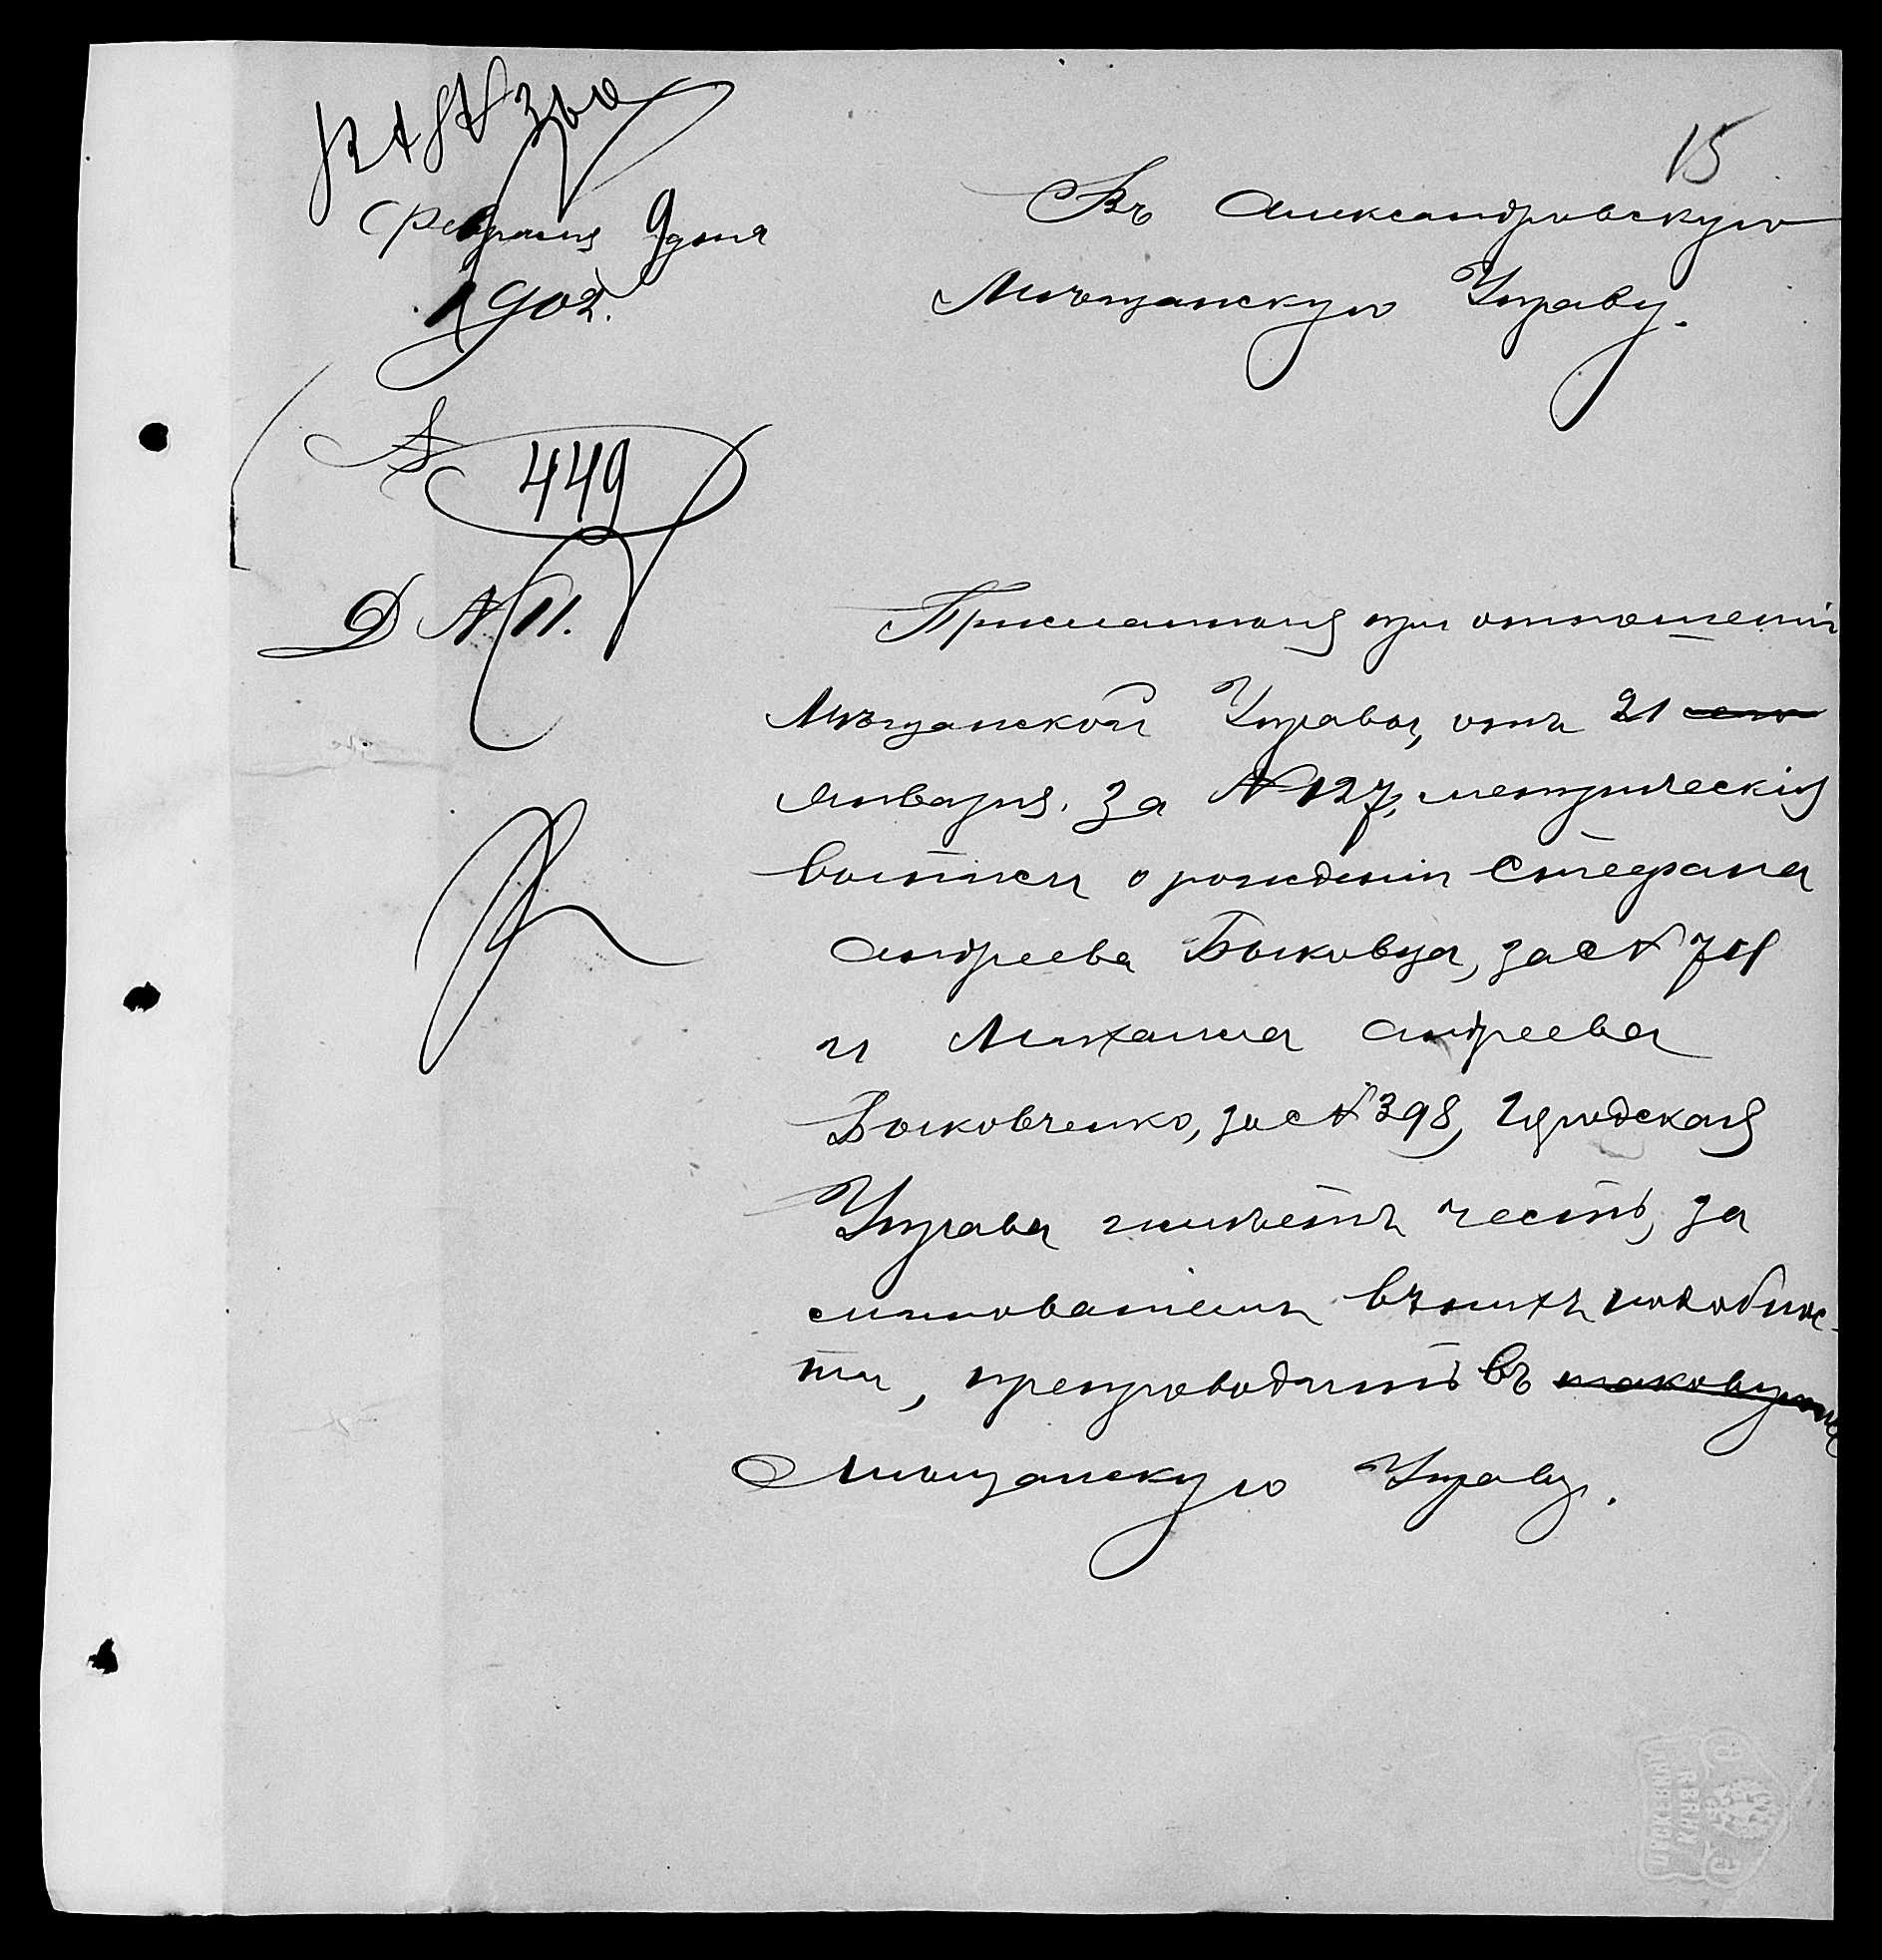 15
Февраля 9 дня
1902.
Въ Александровскую
Мѣщанскую Управу.
№ 449
Д № 11.
Присланныя при отношеніи
Мѣщанской Управы, отъ 21 сего
января, за № 127, метрическія
выписи о рожденіи Стефана
Андреева Быковца, за №
и Михаила Андреева
Быковченко, за № 398, Городская
Управа имѣетъ честь, за
минованіемъ въ нихъ надобнос-
ти, препроводить въ таковую
Мѣщанскую Управу.